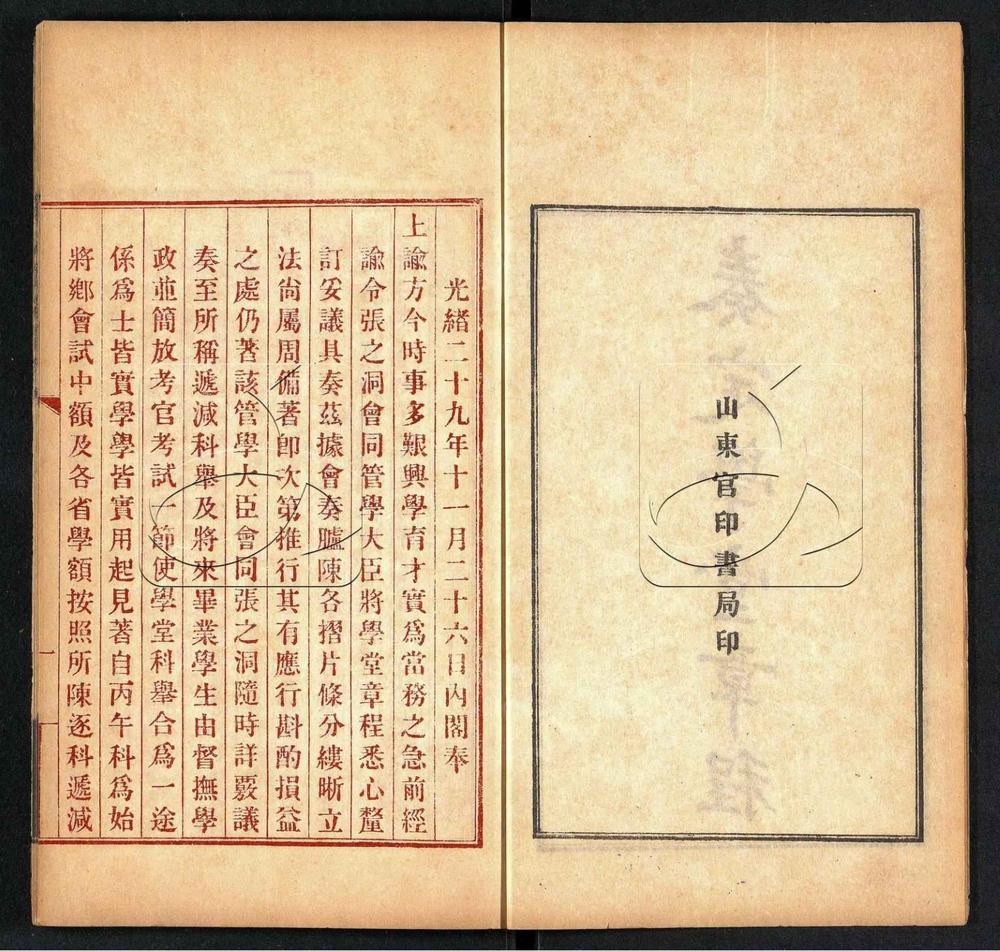 山東官印書局印
光緒二十九年十一月二十六日內閣奉
上諭方今時事多艱興學育才實爲當務之急前經
諭令張之洞會同管學大臣將學堂章程悉心釐
訂妥議具奏茲據會奏臚陳各摺片條分縷晰立
法尙屬周備著卽次第推行其有應行斟酌損益
之處仍著該管學大臣會同張之洞隨時詳覈議
奏至所稱遞減科舉及將來畢業學生由督撫學
政並簡放考官考試一節使學堂科舉合爲一途
係爲士皆實學學皆實用起見著自丙午科爲始
將鄉會試中額及各省學額按照所陳逐科遞減
一